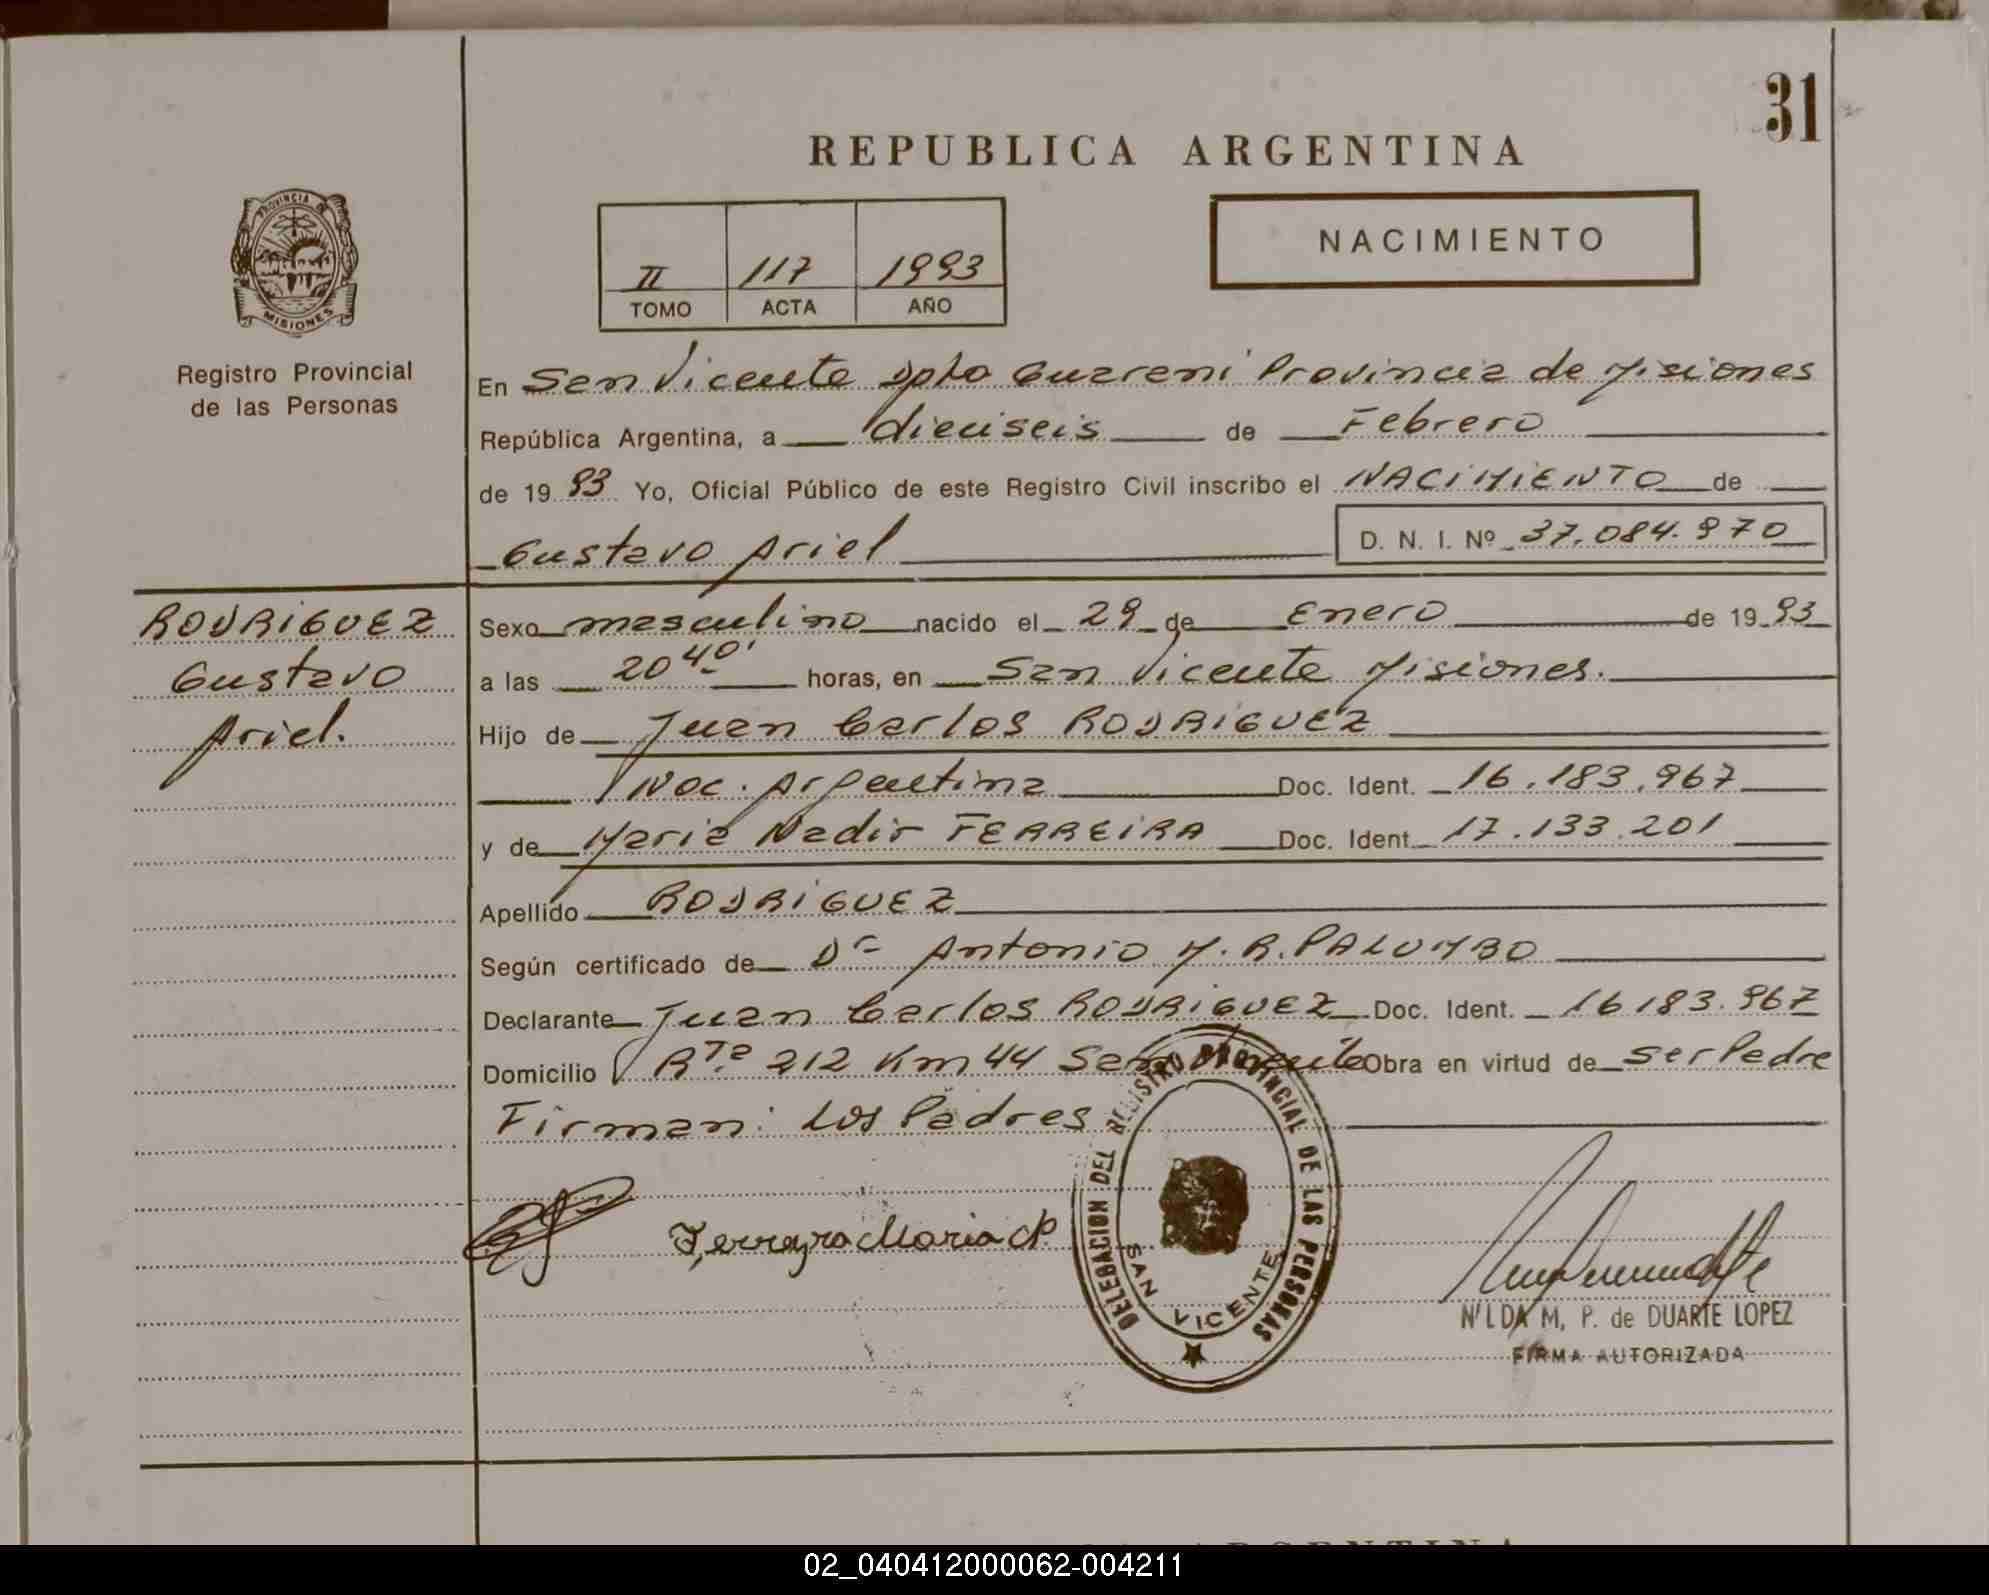 31
REPUBLICA ARGENTINA
PROVINCIA DE
MISIONES
Registro Provincial
de las Personas
II 117 1993
TOMO ACTA AÑO
NACIMIENTO
En San Vicente Dpto Guarani Provincia de Misiones
República Argentina, a dieciseis de Febrero
de 1993 Yo, Oficial Público de este Registro Civil inscribo el NACIMIENTO de
Gustavo Ariel D. N. I. Nº 37.084.970
RODRIGUEZ
Gustavo
Ariel.
Sexo masculino nacido el 29 de Enero de 1993
a las 20 40' horas, en San Vicente Misiones.
Hijo de Juan Carlos RODRIGUEZ
Nac. Argentina Doc. Ident. 16.183.967
y de Maria Nadir FERREIRA Doc. Ident. 17.133.201
Apellido RODRIGUEZ
Según certificado de Dr Antonio M. R. PALUMBO
Declarante Juan Carlos RODRIGUEZ Doc. Ident. 16183.967
Domicilio Rta 212 Km 44 San Vicente Obra en virtud de ser Padre
Firman: Los Padres
Ferreyra Maria N
DELEGACION DEL REGISTRO PROVINCIAL DE LAS PERSONAS
SAN VICENTE
NILDA M. P. de DUARTE LOPEZ
FIRMA AUTORIZADA
ARGENTINA
02_040412000062-004211